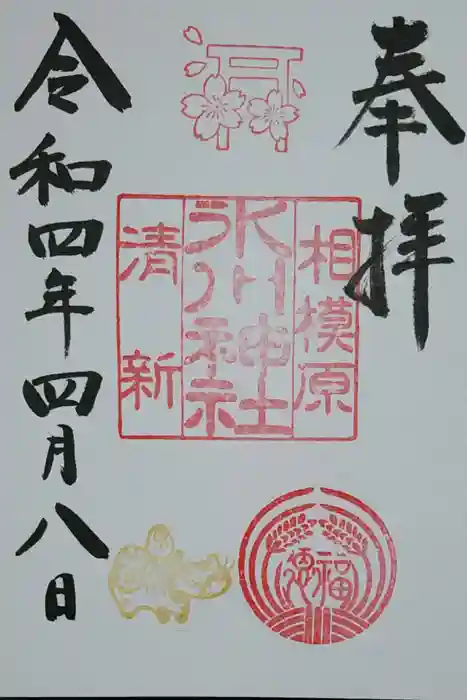 奉拝
相模原
氷川神社
清新
福恩
令和四年四月八日